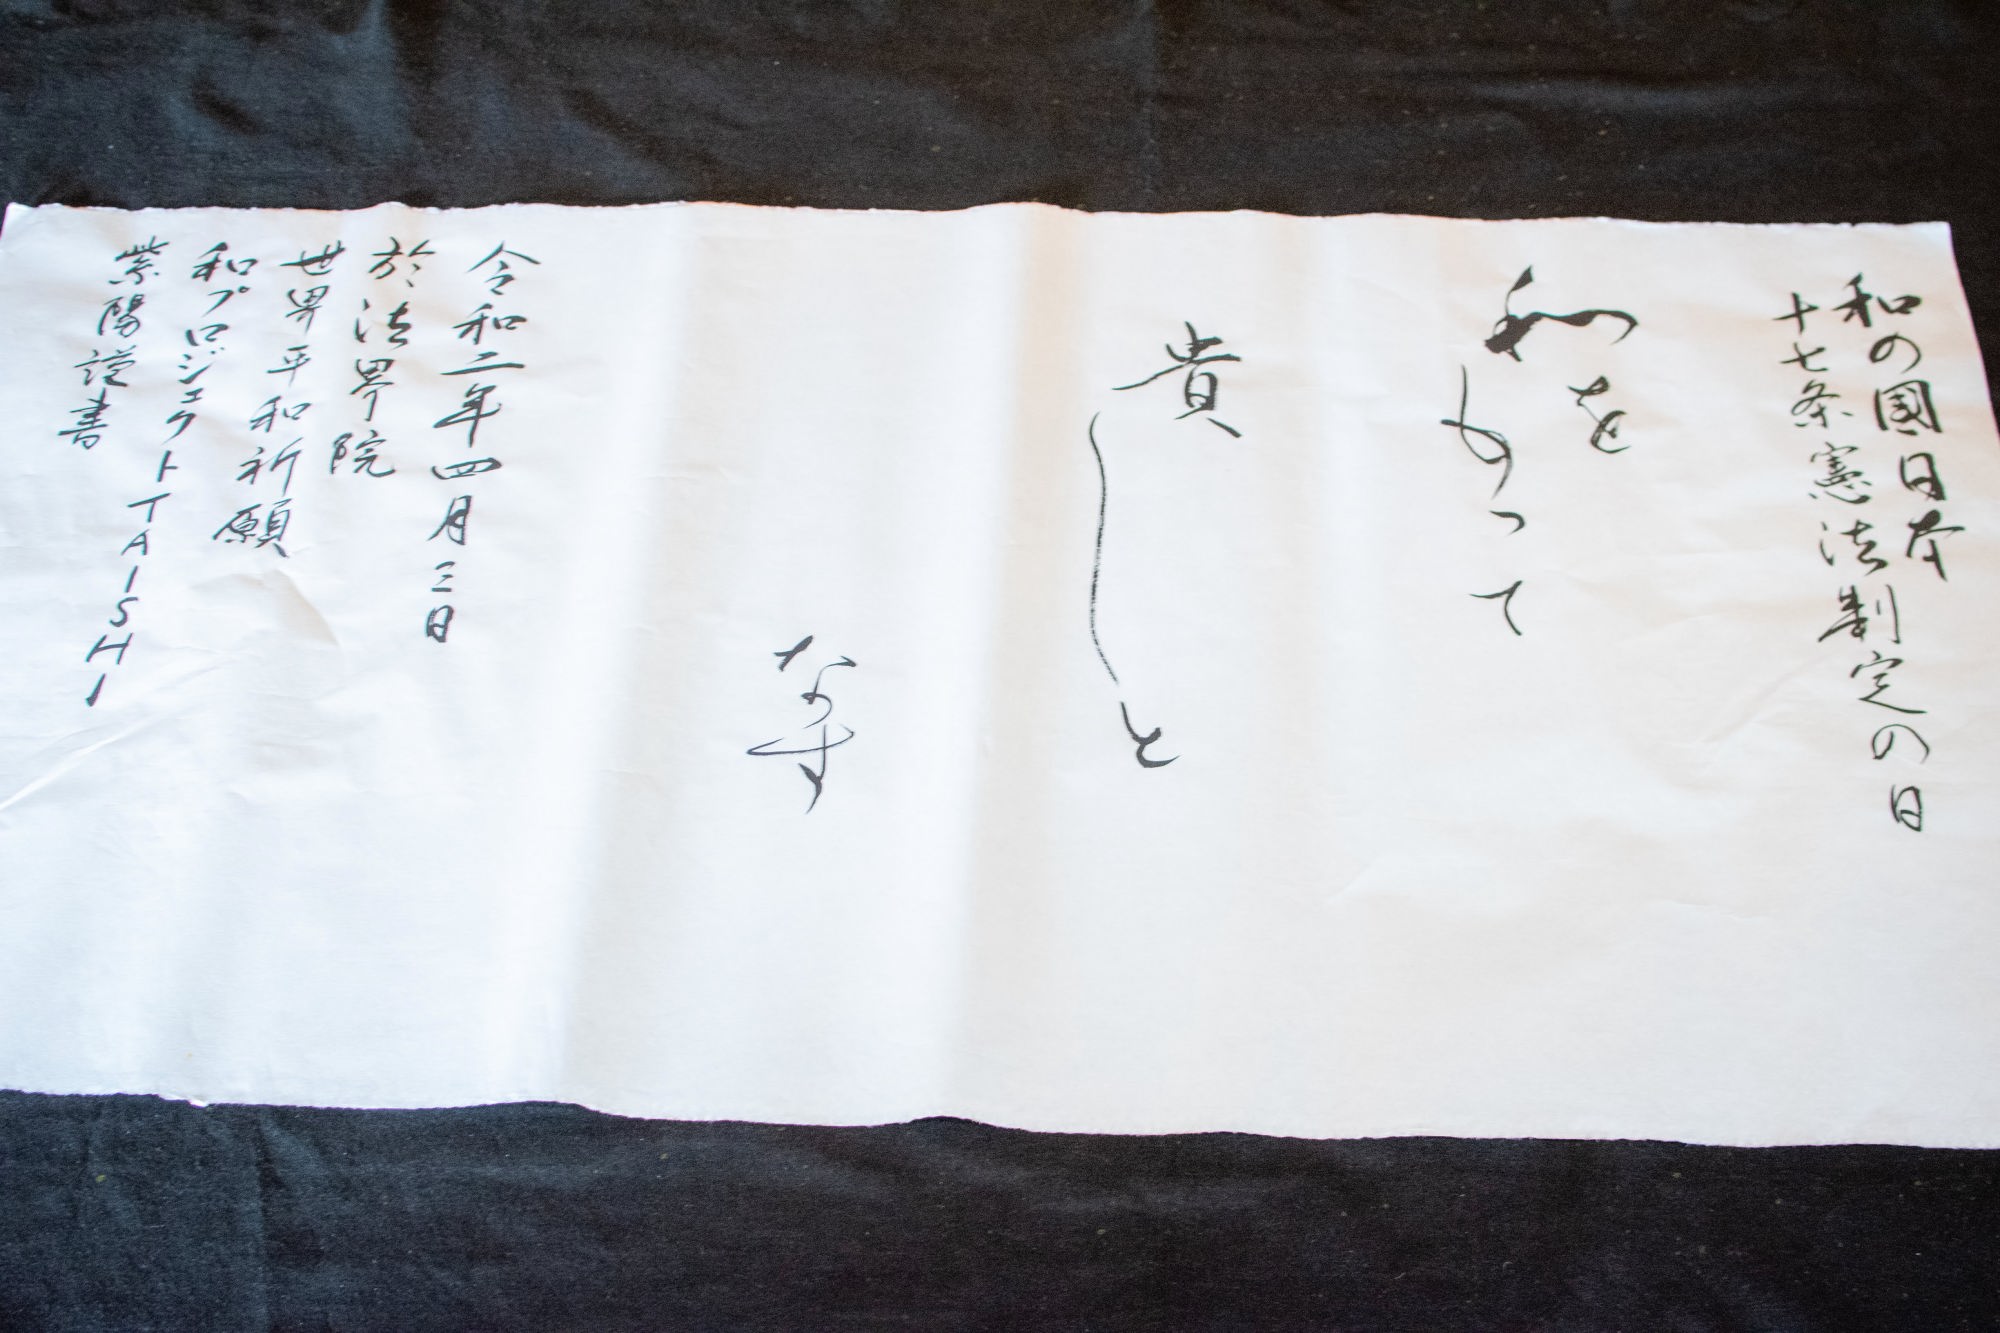 和の國日本
十七条憲法制定の日
和を
もって
貴しと
なす
令和二年四月三日
於法界院
世界平和祈願
和プロジェクトTAISHI
紫陽謹書